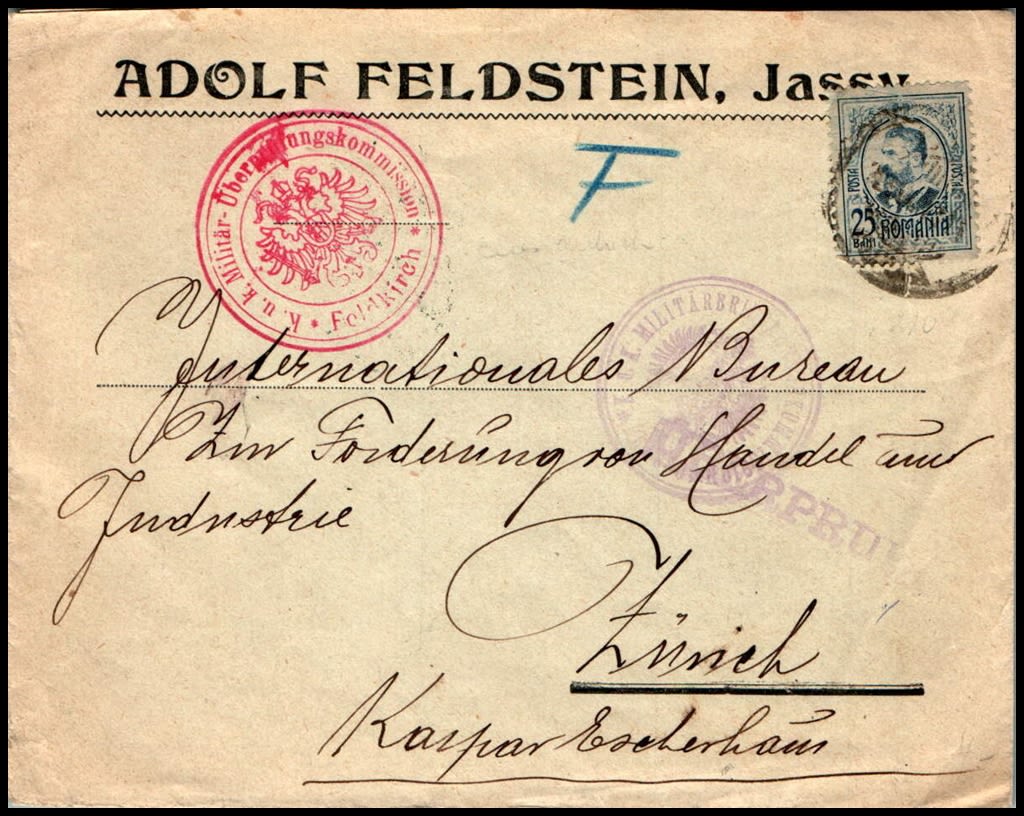 ADOLF FELDSTEIN, Jassy
K. u. k. Militär-Überprüfungskommission * Feldkirch *
F
POSTA
25 BANI ROMANIA
K. MILITÄRBRI
ÜBERPRÜ
Internationales Bureau
Zur Förderung von Handel und
Industrie
Zürich
Kaspar Escherhaus